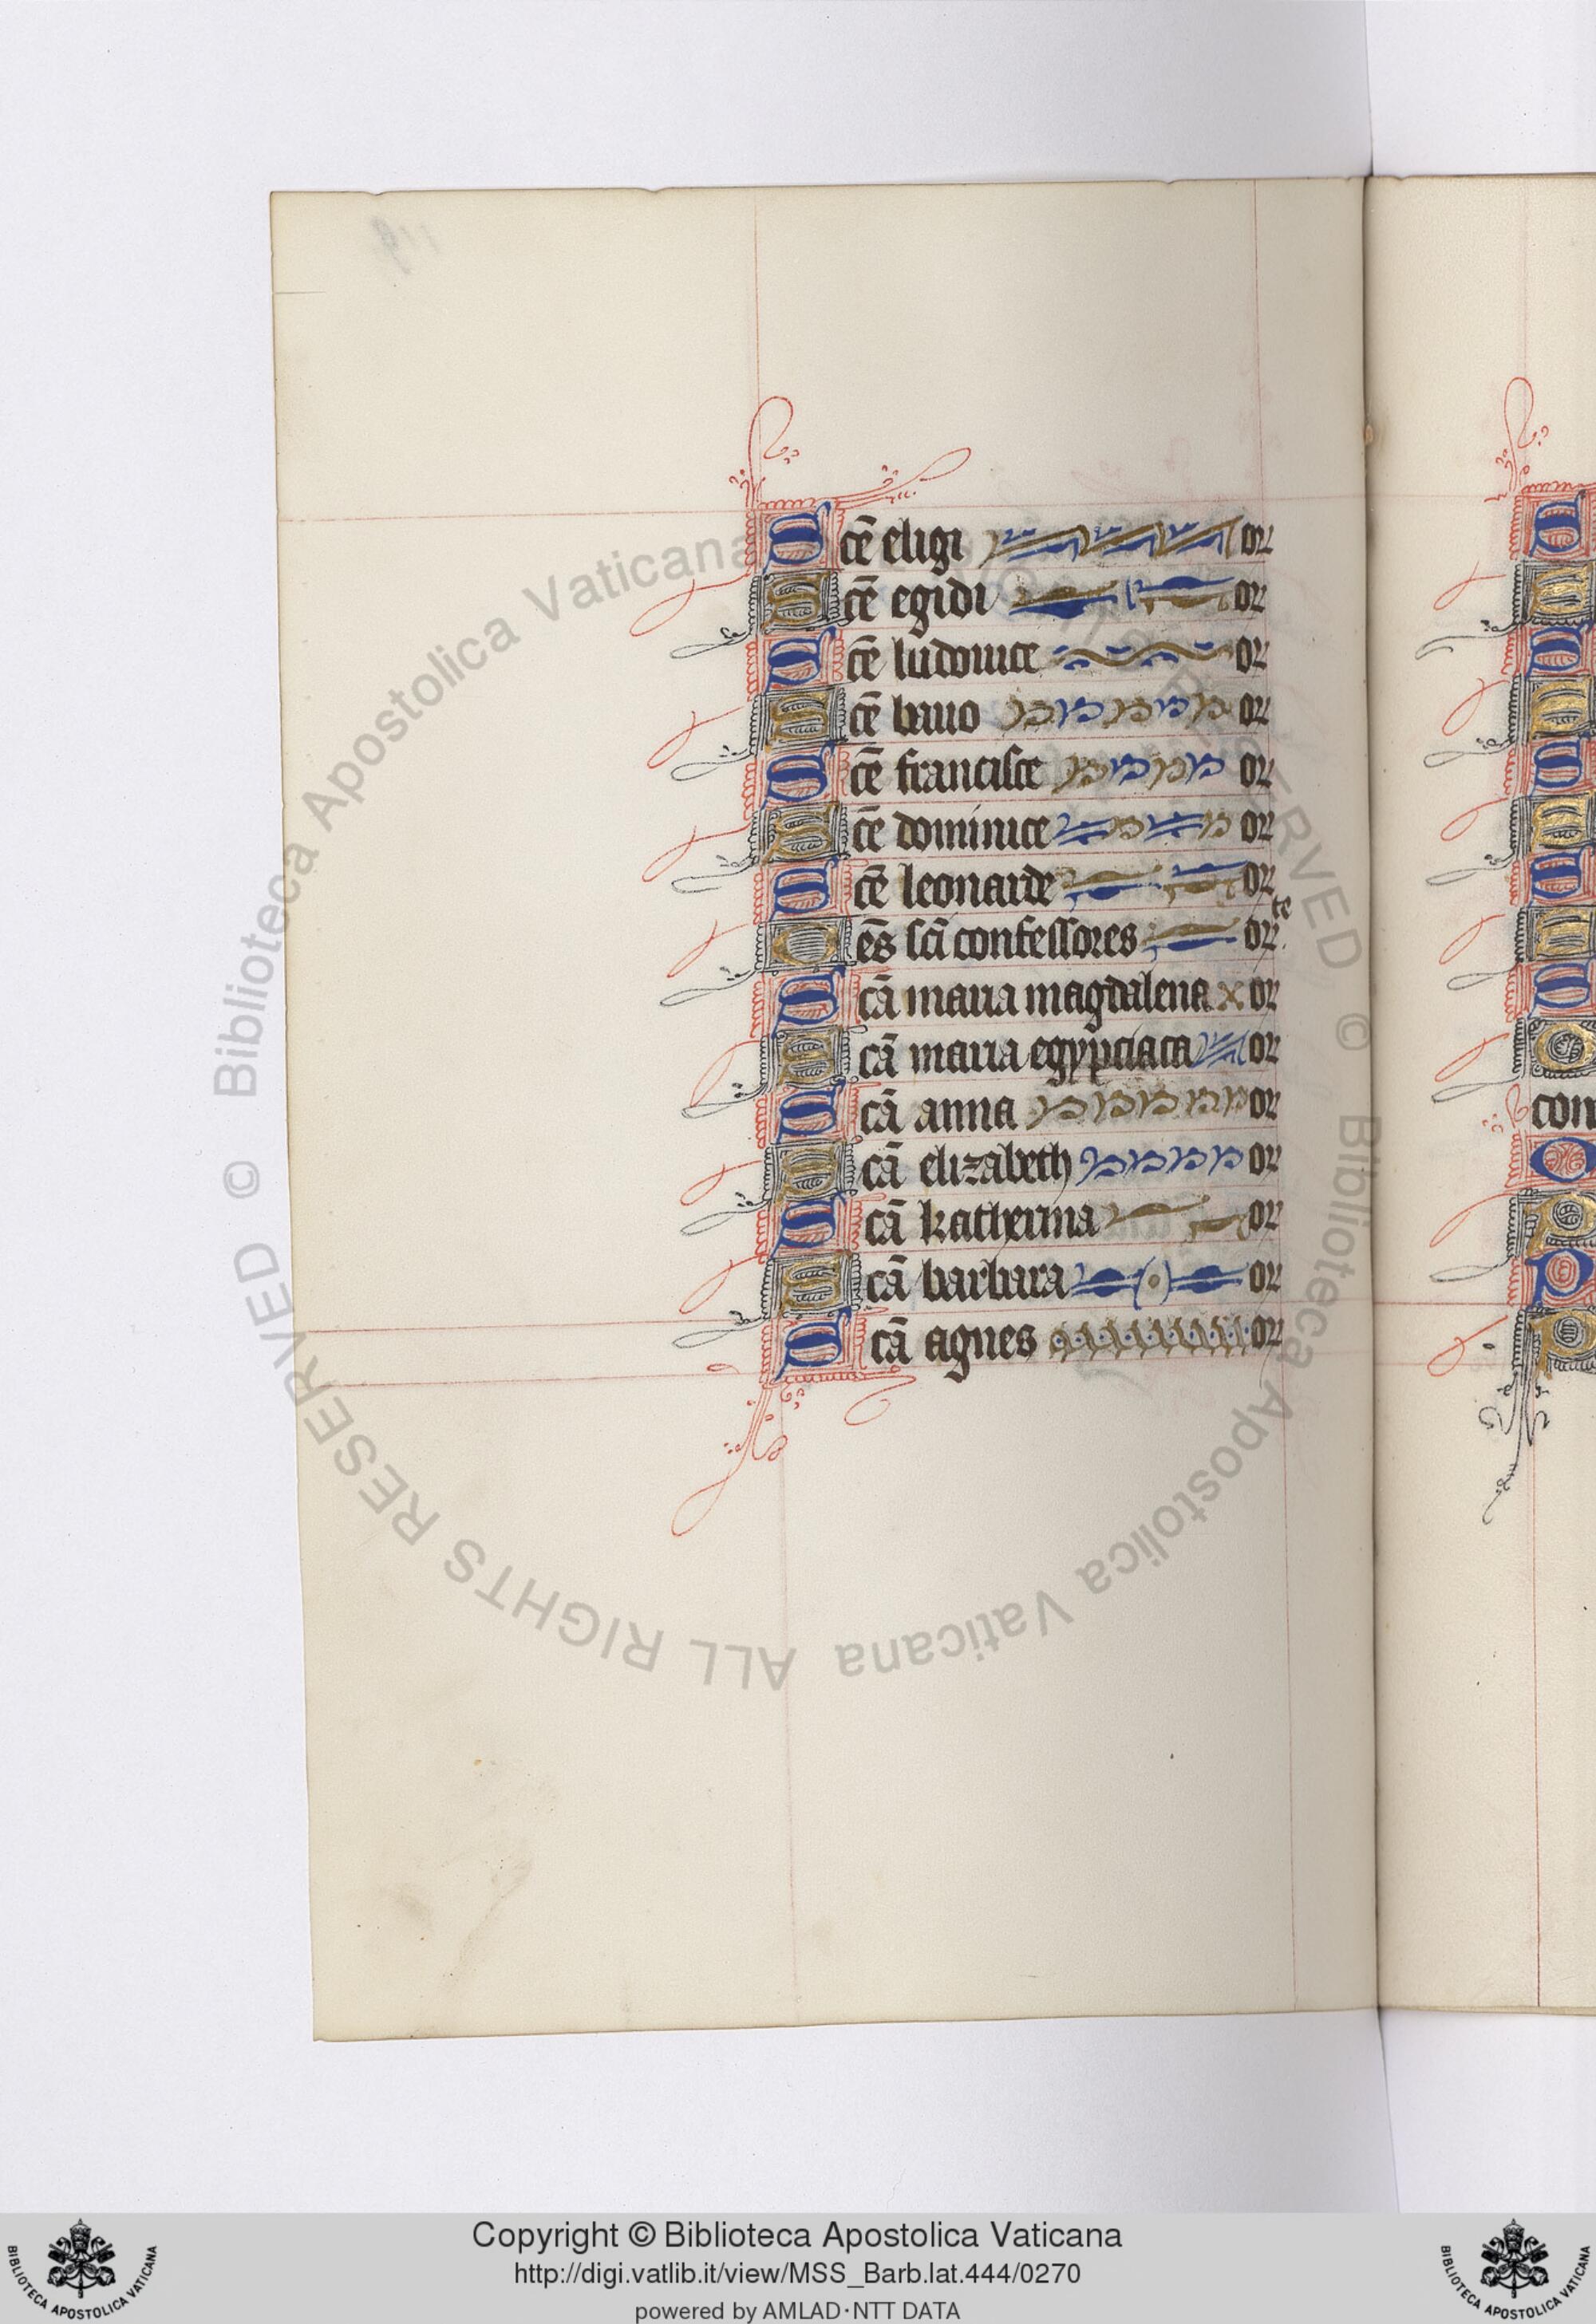 Scē eligi or
Scē egidi or
Scē ludouice or
Scē bauo or
Scē francisce or
Scē dominice or
Scē leonarde or
Oēs scī confessores or te
Scā maria magdalena or
Scā maria egypciaca or
Scā anna or
Scā elizabeth or
Scā katherina or
Scā barbara or
Scā agnes or
con
© Biblioteca Apostolica Vaticana
ALL RIGHTS RESERVED
© Biblioteca Apostolica Vaticana
Copyright © Biblioteca Apostolica Vaticana
http://digi.vatlib.it/view/MSS_Barb.lat.444/0270
powered by AMLAD·NTT DATA
BIBLIOTECA APOSTOLICA VATICANA
BIBLIOTECA APOSTOLICA VATICANA